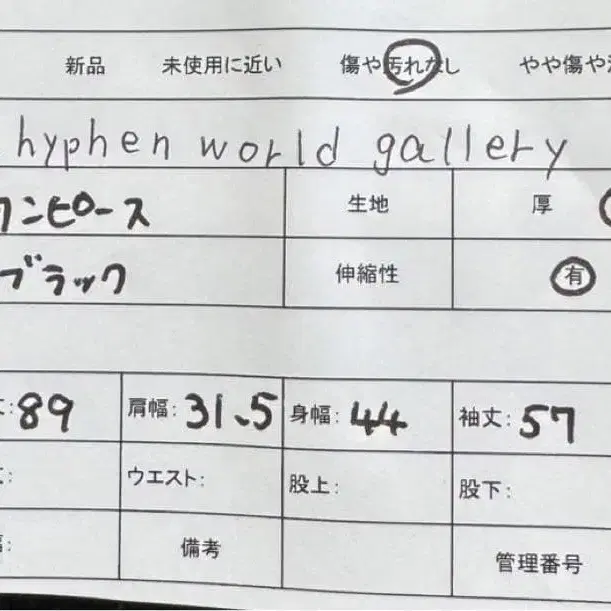 新品 未使用に近い 傷や汚れなし やや傷や
hyphen world gallery
ワンピース 生地 厚
ブラック 伸縮性 有
丈:89 肩幅:31.5 身幅:44 袖丈:57
ウエスト: 股上: 股下:
備考 管理番号